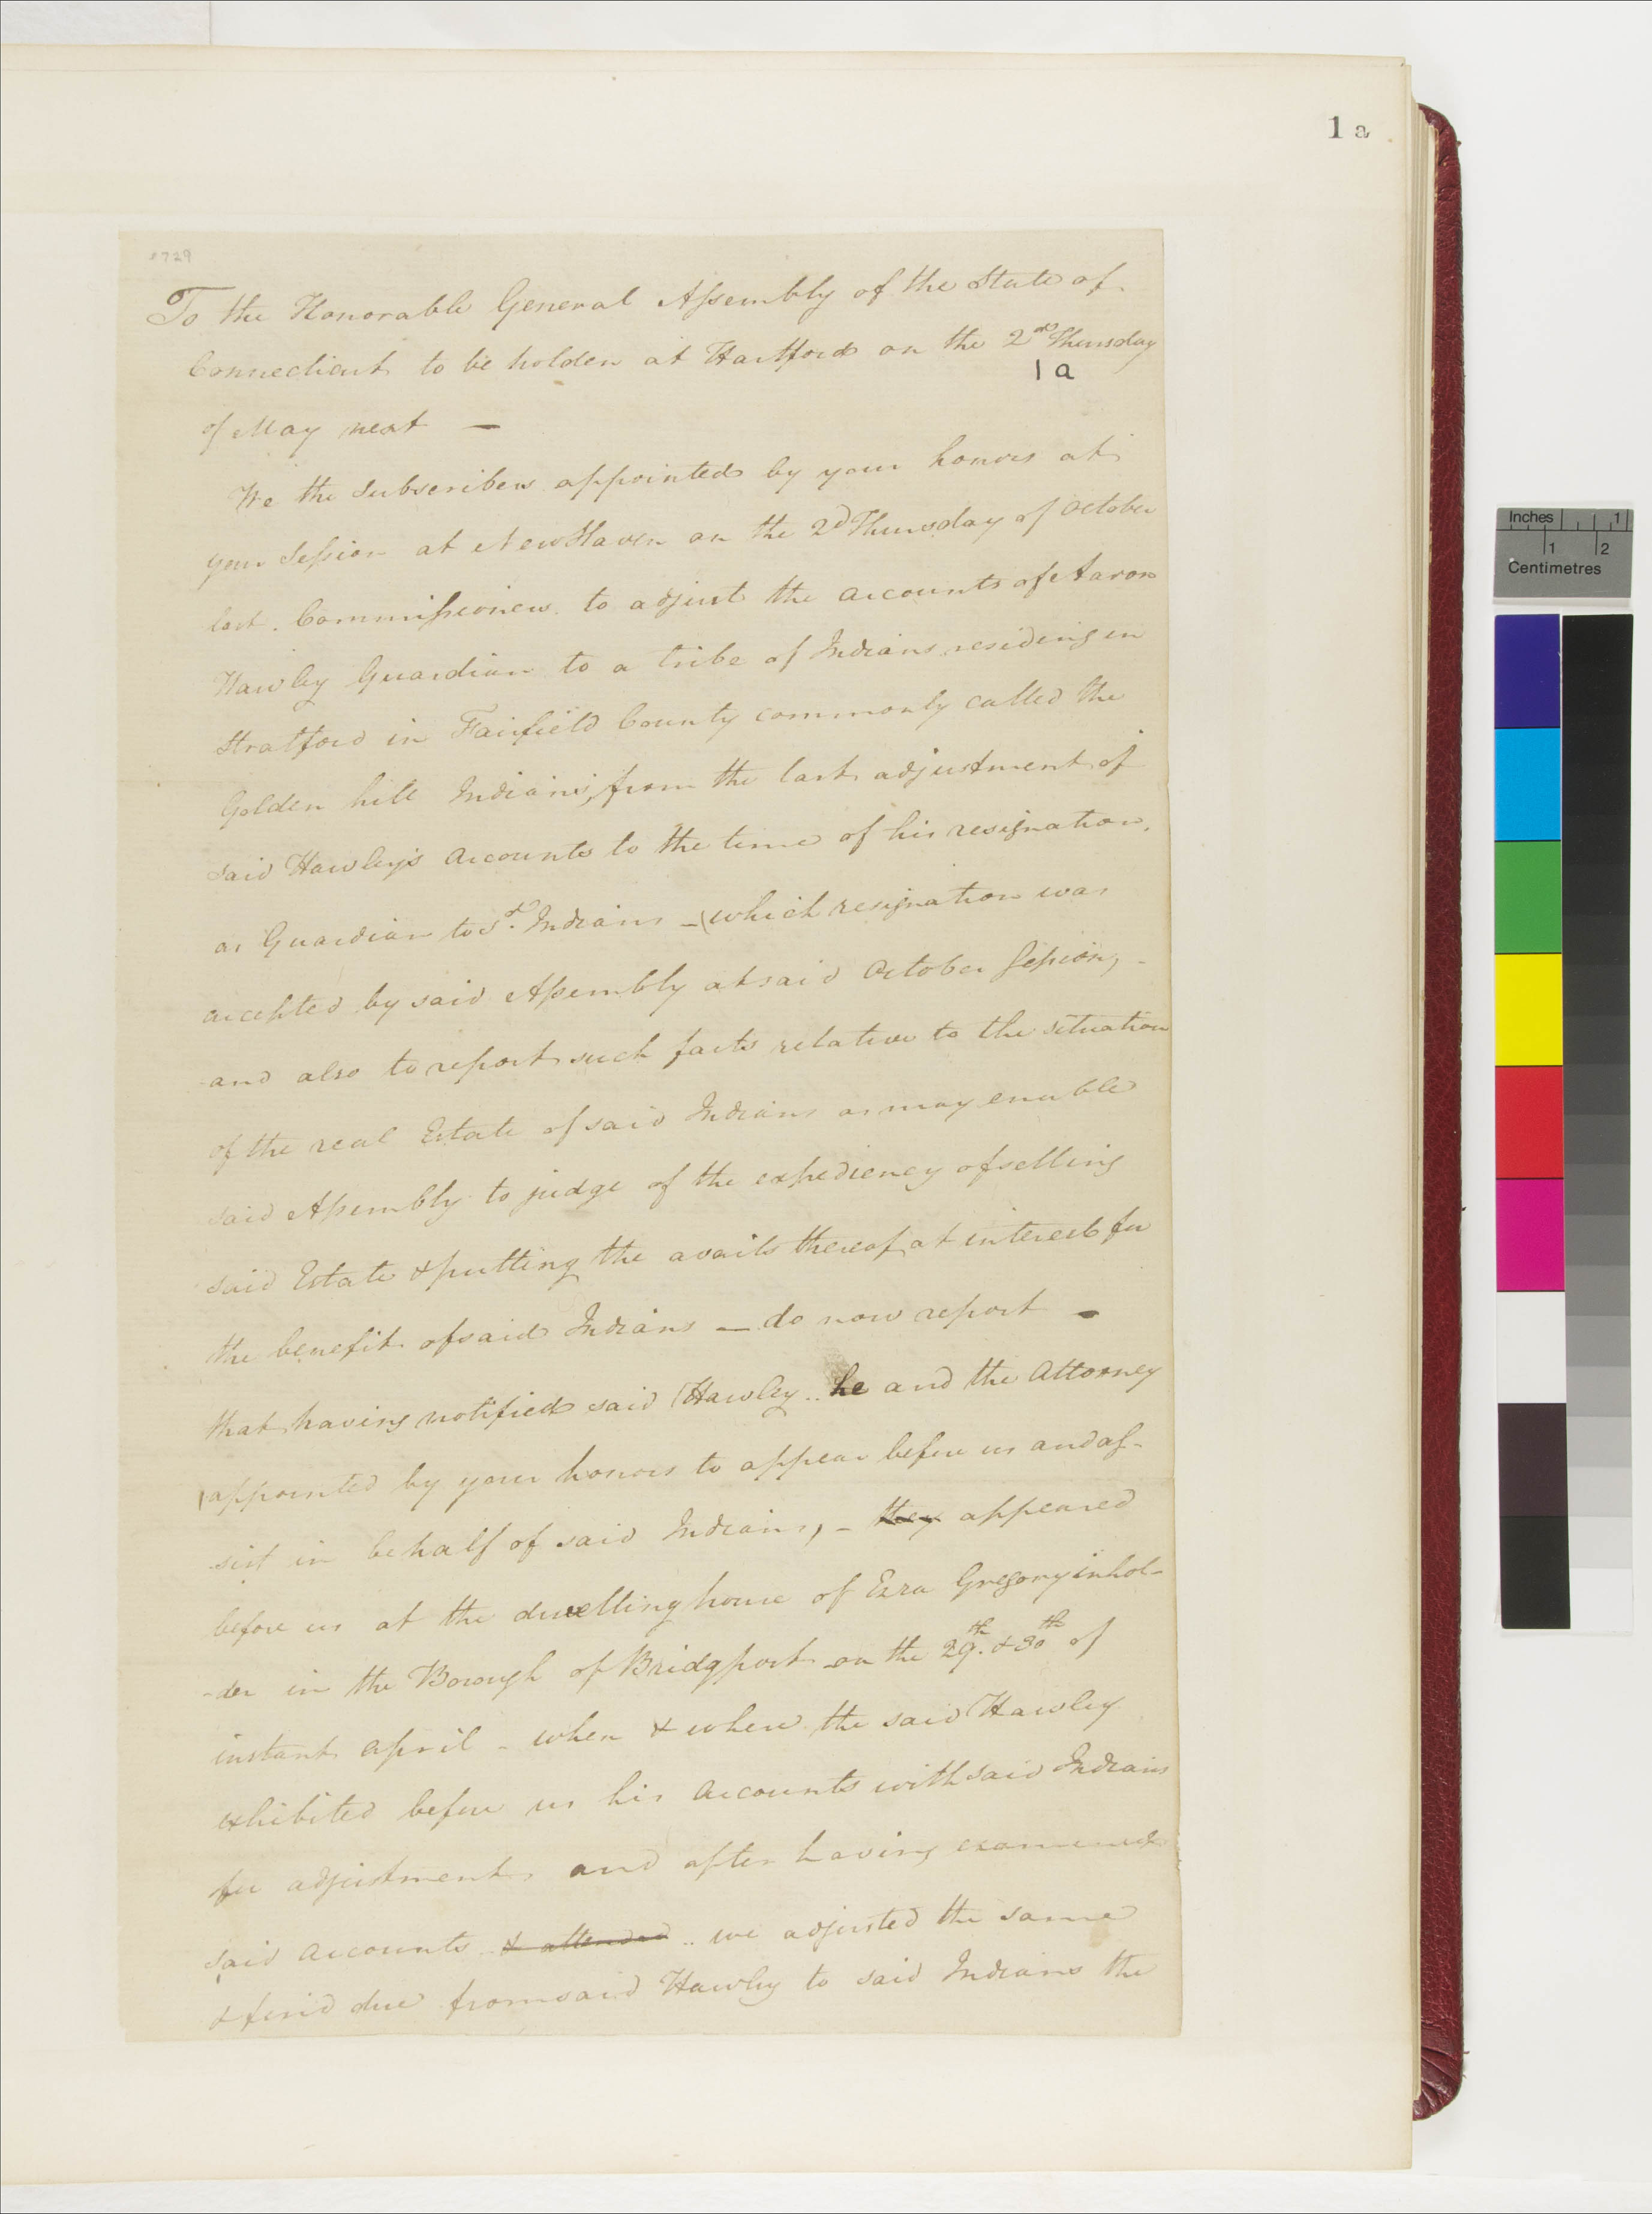 1 a
#729
To the Honorable General Assembly of the State of
Connecticut to be holden at Hartford on the 2nd Thursday
1a
of May next —
We the Subscribers appointed by your honors at
your Session at New Haven on the 2d Thursday of October
last. Commissioners to adjust the accounts of Aaron
Hawley Guardian to a tribe of Indians residing in
Stratford in Fairfield County commonly called the
Golden hill Indians, from the last adjustment of
said Hawley's accounts to the time of his resignation,
as Guardian to sd. Indians — (which resignation was
accepted by said Assembly at said October Session, -
and also to report such facts relative to the situation
of the real Estate of said Indians as may enable
said Assembly to judge of the expediency of selling
said Estate & putting the avails thereof at interest for
the benefit of said Indians — do now report —
that having notified said Hawley .. he and the Attorney
appointed by your honors to appear before us and as-
sist in behalf of said Indians, - they appeared
before us at the dwelling house of Ezra Gregory inhol-
-der in the Borough of Bridgport on the 29th. & 30th of
instant april - when & where the said Hawley
exhibited before us his accounts with said Indians
for adjustment, and after having examined
said accounts & attended .. we adjusted the same
& find due from said Hawley to said Indians the
Inches 1
1 2
Centimetres